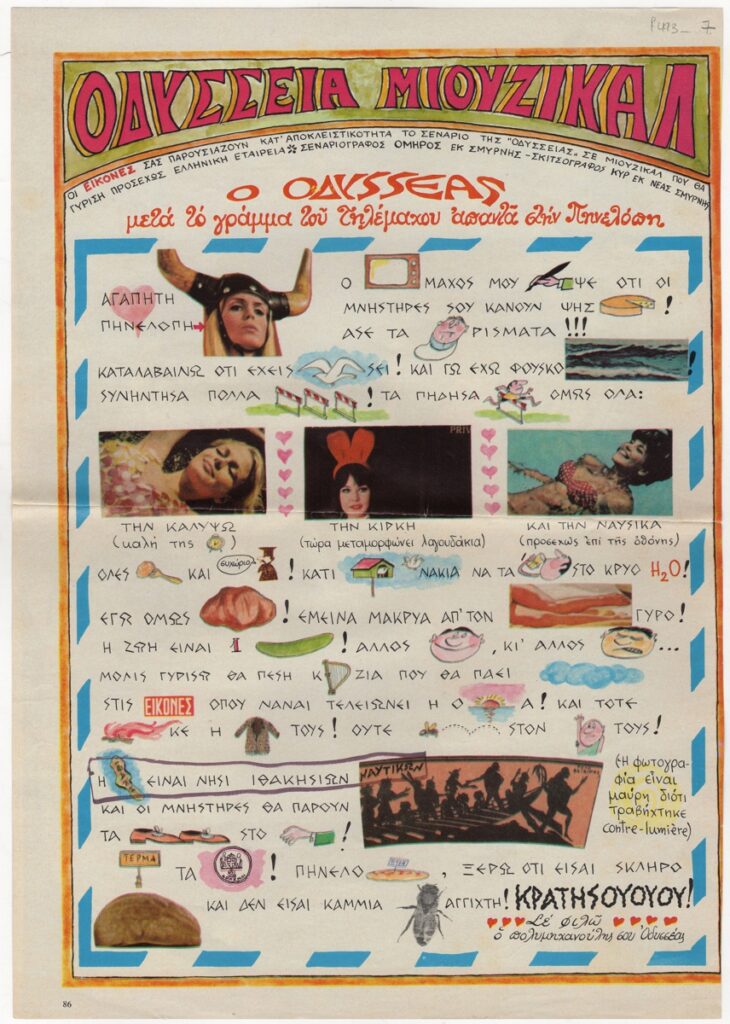 P473_ 7.
ΟΔΥΣΣΕΙΑ ΜΙΟΥΖΙΚΑΛ
ΟΙ ΕΙΚΟΝΕΣ ΣΑΣ ΠΑΡΟΥΣΙΑΖΟΥΝ ΚΑΤ' ΑΠΟΚΛΕΙΣΤΙΚΟΤΗΤΑ ΤΟ ΣΕΝΑΡΙΟ ΤΗΣ "ΟΔΥΣΣΕΙΑΣ" ΣΕ ΜΙΟΥΖΙΚΑΛ ΠΟΥ ΘΑ
ΓΥΡΙΣΗ ΠΡΟΣΕΧΩΣ ΕΛΛΗΝΙΚΗ ΕΤΑΙΡΕΙΑ * ΣΕΝΑΡΙΟΓΡΑΦΟΣ ΟΜΗΡΟΣ ΕΚ ΣΜΥΡΝΗΣ - ΣΚΙΤΣΟΓΡΑΦΟΣ ΚΥΡ ΕΚ ΝΕΑΣ ΣΜΥΡΝΗΣ
Ο ΟΔΥΣΣΕΑΣ
μετά τό γράμμα τοῦ τηλέμαχου ἀπαντᾶ στήν Πηνελόπη
ΑΓΑΠΗΤΗ
ΠΗΝΕΛΟΠΗ
Ο ΜΑΧΟΣ ΜΟΥ ΨΕ ΟΤΙ ΟΙ
ΜΝΗΣΤΗΡΕΣ ΣΟΥ ΚΑΝΟΥΝ ΨΗΣ !
ΑΣΕ ΤΑ ΡΙΣΜΑΤΑ !!!
ΚΑΤΑΛΑΒΑΙΝΩ ΟΤΙ ΕΧΕΙΣ ΣΕΙ! ΚΑΙ ΓΩ ΕΧΩ ΦΟΥΣΚΟ !
ΣΥΝΗΝΤΗΣΑ ΠΟΛΛΑ ! ΤΑ ΠΗΔΗΣΑ ΟΜΩΣ ΟΛΑ:
PRIV
ΤΗΝ ΚΑΛΥΨΩ ΤΗΝ ΚΙΡΚΗ ΚΑΙ ΤΗΝ ΝΑΥΣΙΚΑ
(καλή της ) (τώρα μεταμορφώνει λαγουδάκια) (προσεχῶς ἐπί τῆς ὀθόνης)
ΟΛΕΣ ΚΑΙ ! ΚΑΤΙ ΝΑΚΙΑ ΝΑ ΤΑ ΣΤΟ ΚΡΥΟ H2O!
ΕΓΩ ΟΜΩΣ ! ΕΜΕΙΝΑ ΜΑΚΡΥΑ ΑΠ' ΤΟΝ ΓΥΡΟ!
Η ΖΩΗ ΕΙΝΑΙ 1 ! ΑΛΛΟΣ , ΚΙ' ΑΛΛΟΣ ...
ΜΟΛΙΣ ΓΥΡΙΣΩ ΘΑ ΠΕΣΗ Κ ΖΙΑ ΠΟΥ ΘΑ ΠΑΕΙ
ΣΤΙΣ ΕΙΚΟΝΕΣ ΟΠΟΥ ΝΑΝΑΙ ΤΕΛΕΙΩΝΕΙ Η Ο Α! ΚΑΙ ΤΟΤΕ
ΚΕ Η ΤΟΥΣ! ΟΥΤΕ ΣΤΟΝ ΤΟΥΣ!
Η ΕΙΝΑΙ ΝΗΣΙ ΙΘΑΚΗΣΙΩΝ ΝΑΥΤΙΚΩΝ
ΚΑΙ ΟΙ ΜΝΗΣΤΗΡΕΣ ΘΑ ΠΑΡΟΥΝ
ΤΑ ΣΤΟ !
(Η φωτογρα-
φία εἶναι
μαύρη διότι
τραβήχτηκε
contre-lumière)
ΤΕΡΜΑ
ΤΑ ! ΠΗΝΕΛΟ , ΞΕΡΩ ΟΤΙ ΕΙΣΑΙ ΣΚΛΗΡΟ
ΚΑΙ ΔΕΝ ΕΙΣΑΙ ΚΑΜΜΙΑ ΑΓΓΙΧΤΗ! ΚΡΑΤΗΣΟΥΟΥΟΥ!
Σέ φιλῶ
ὁ πολυμηχανούλης σου Ὀδυσσέας
86